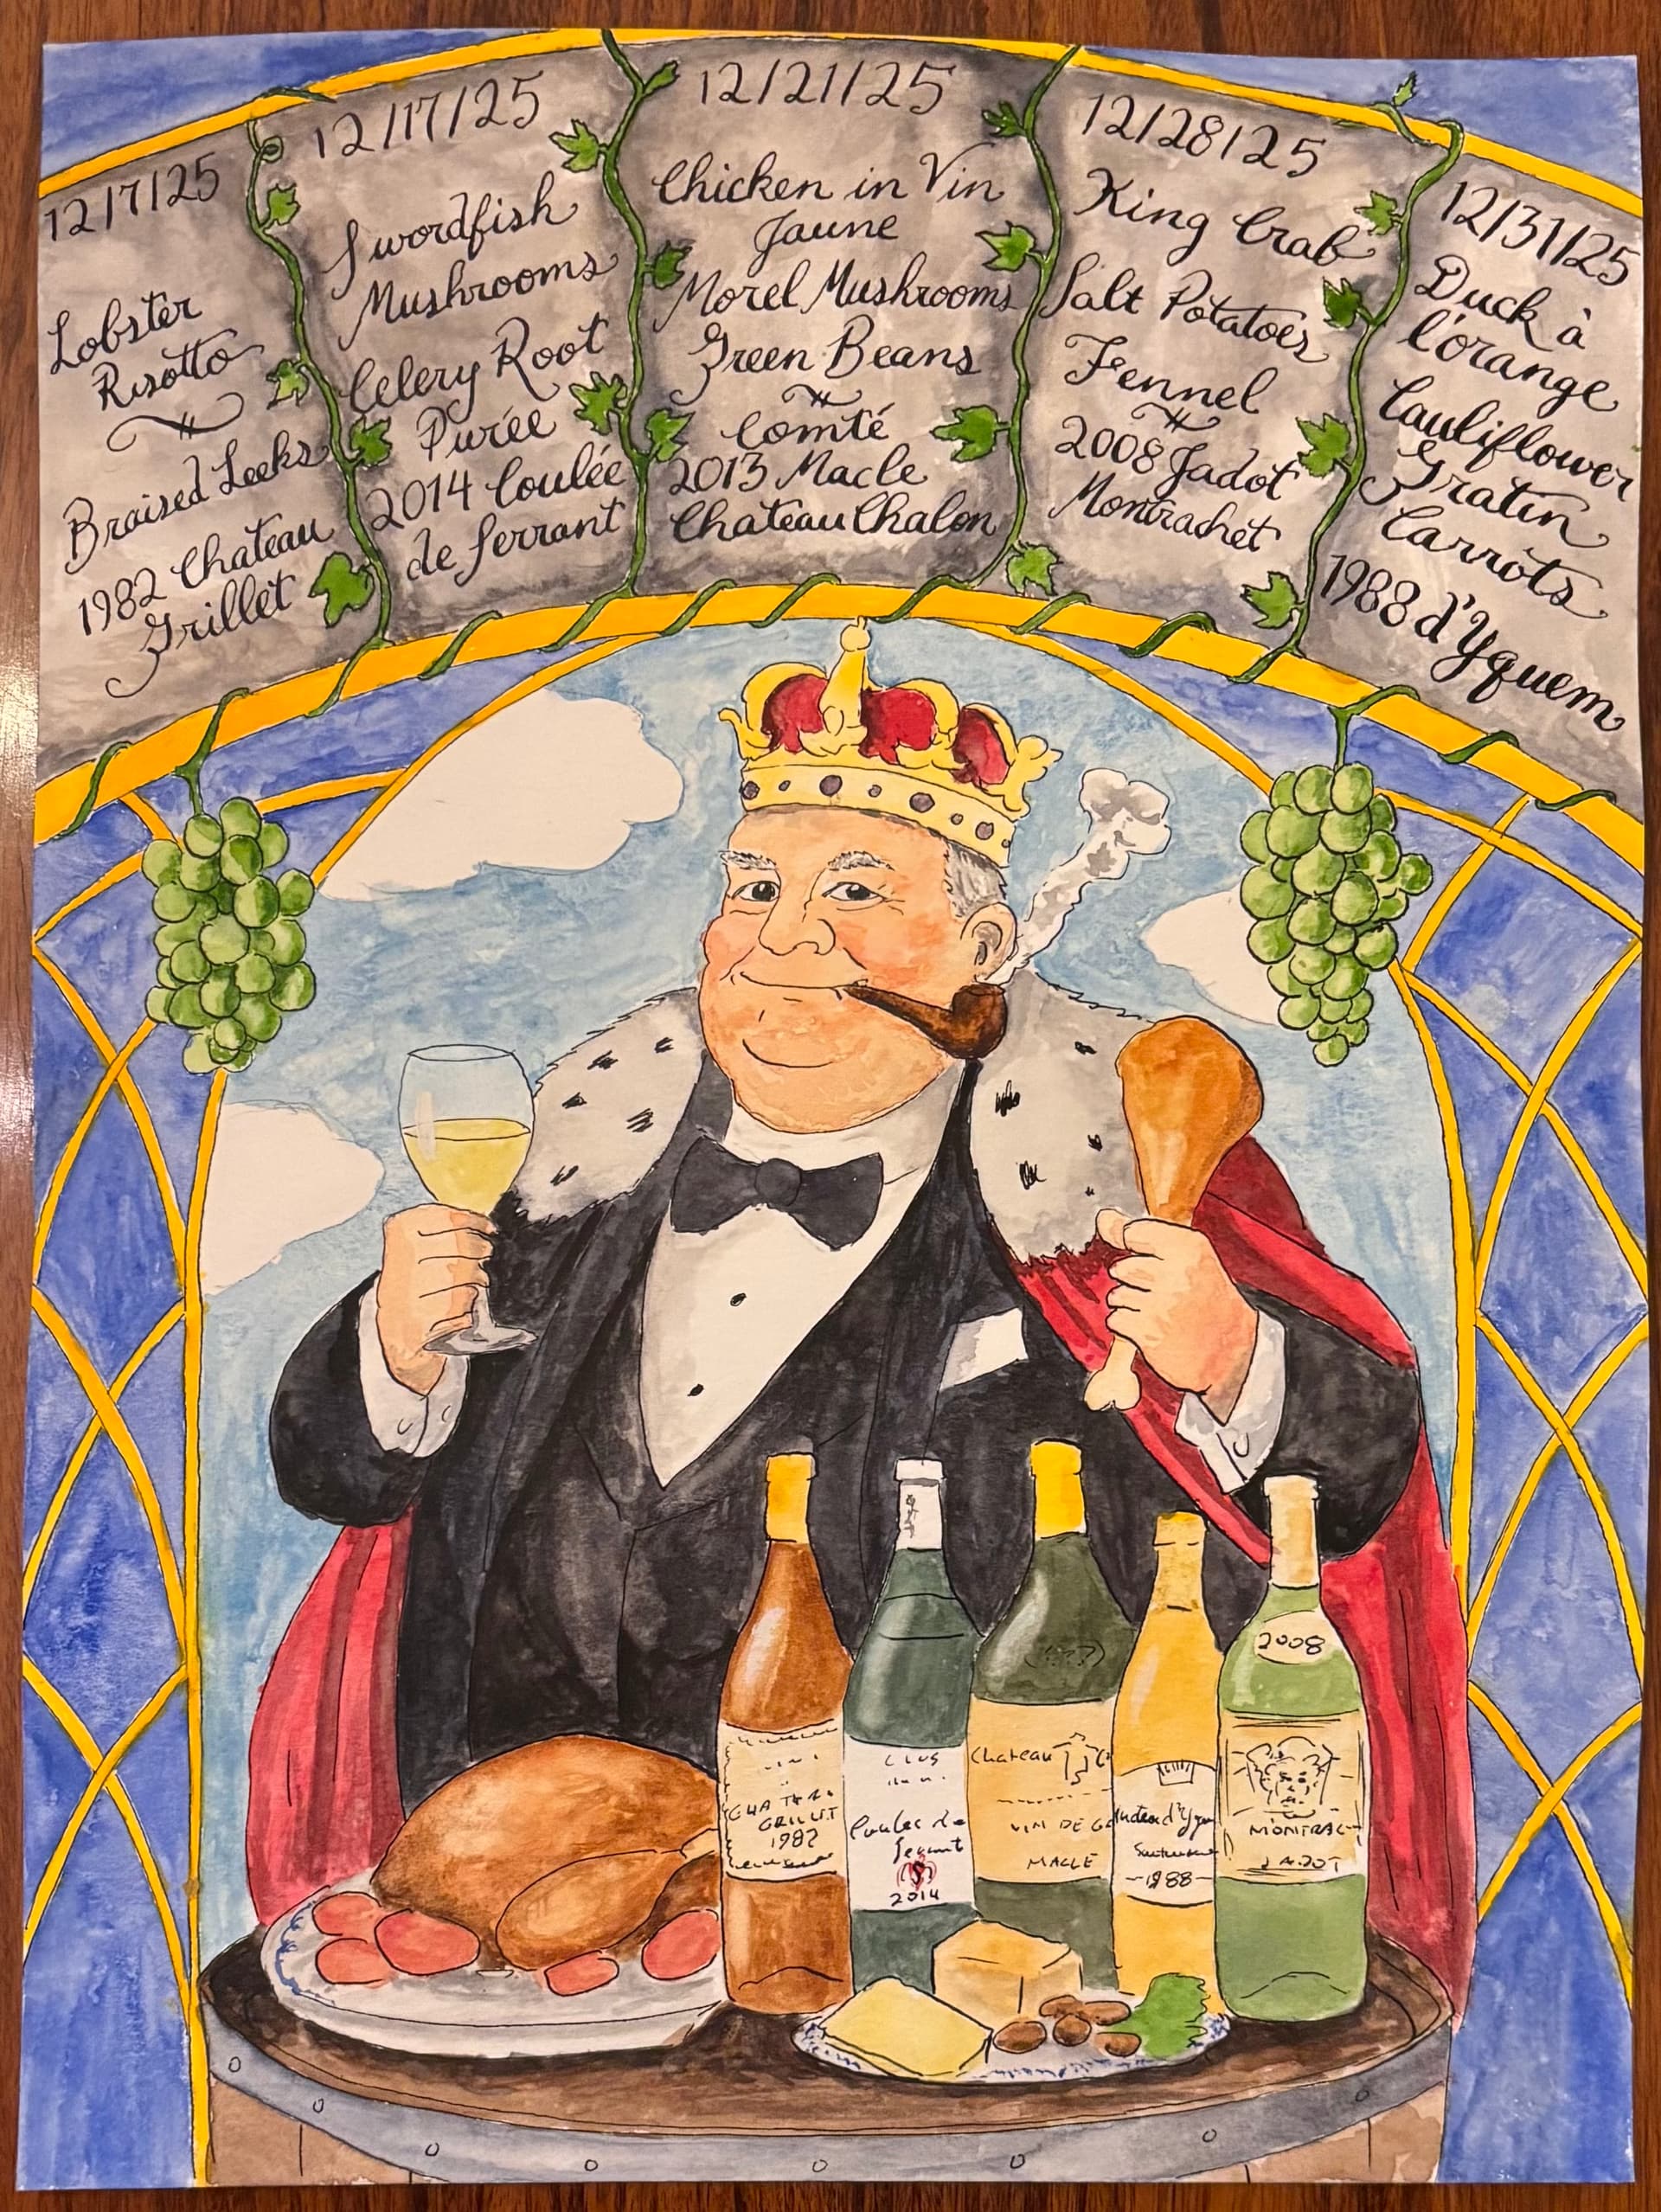 12/7/25
Lobster
Risotto
Braised Leeks
1982 Chateau
Grillet
12/17/25
Swordfish
Mushrooms
Celery Root
Purée
2014 Coulée
de Serrant
12/21/25
Chicken in Vin
Jaune
Morel Mushrooms
Green Beans
Comté
2013 Macle
Chateau Chalon
12/28/25
King Crab
Salt Potatoes
Fennel
2008 Jadot
Montrachet
12/31/25
Duck à
l'orange
Cauliflower
Gratin
Carrots
1988 d'Yquem
GRILLET
1982
CLOS
Coulée de
Serrant
2014
Chateau
VIN DE
MACLE
d'Yque
1988
2008
MONTRAC
JADOT